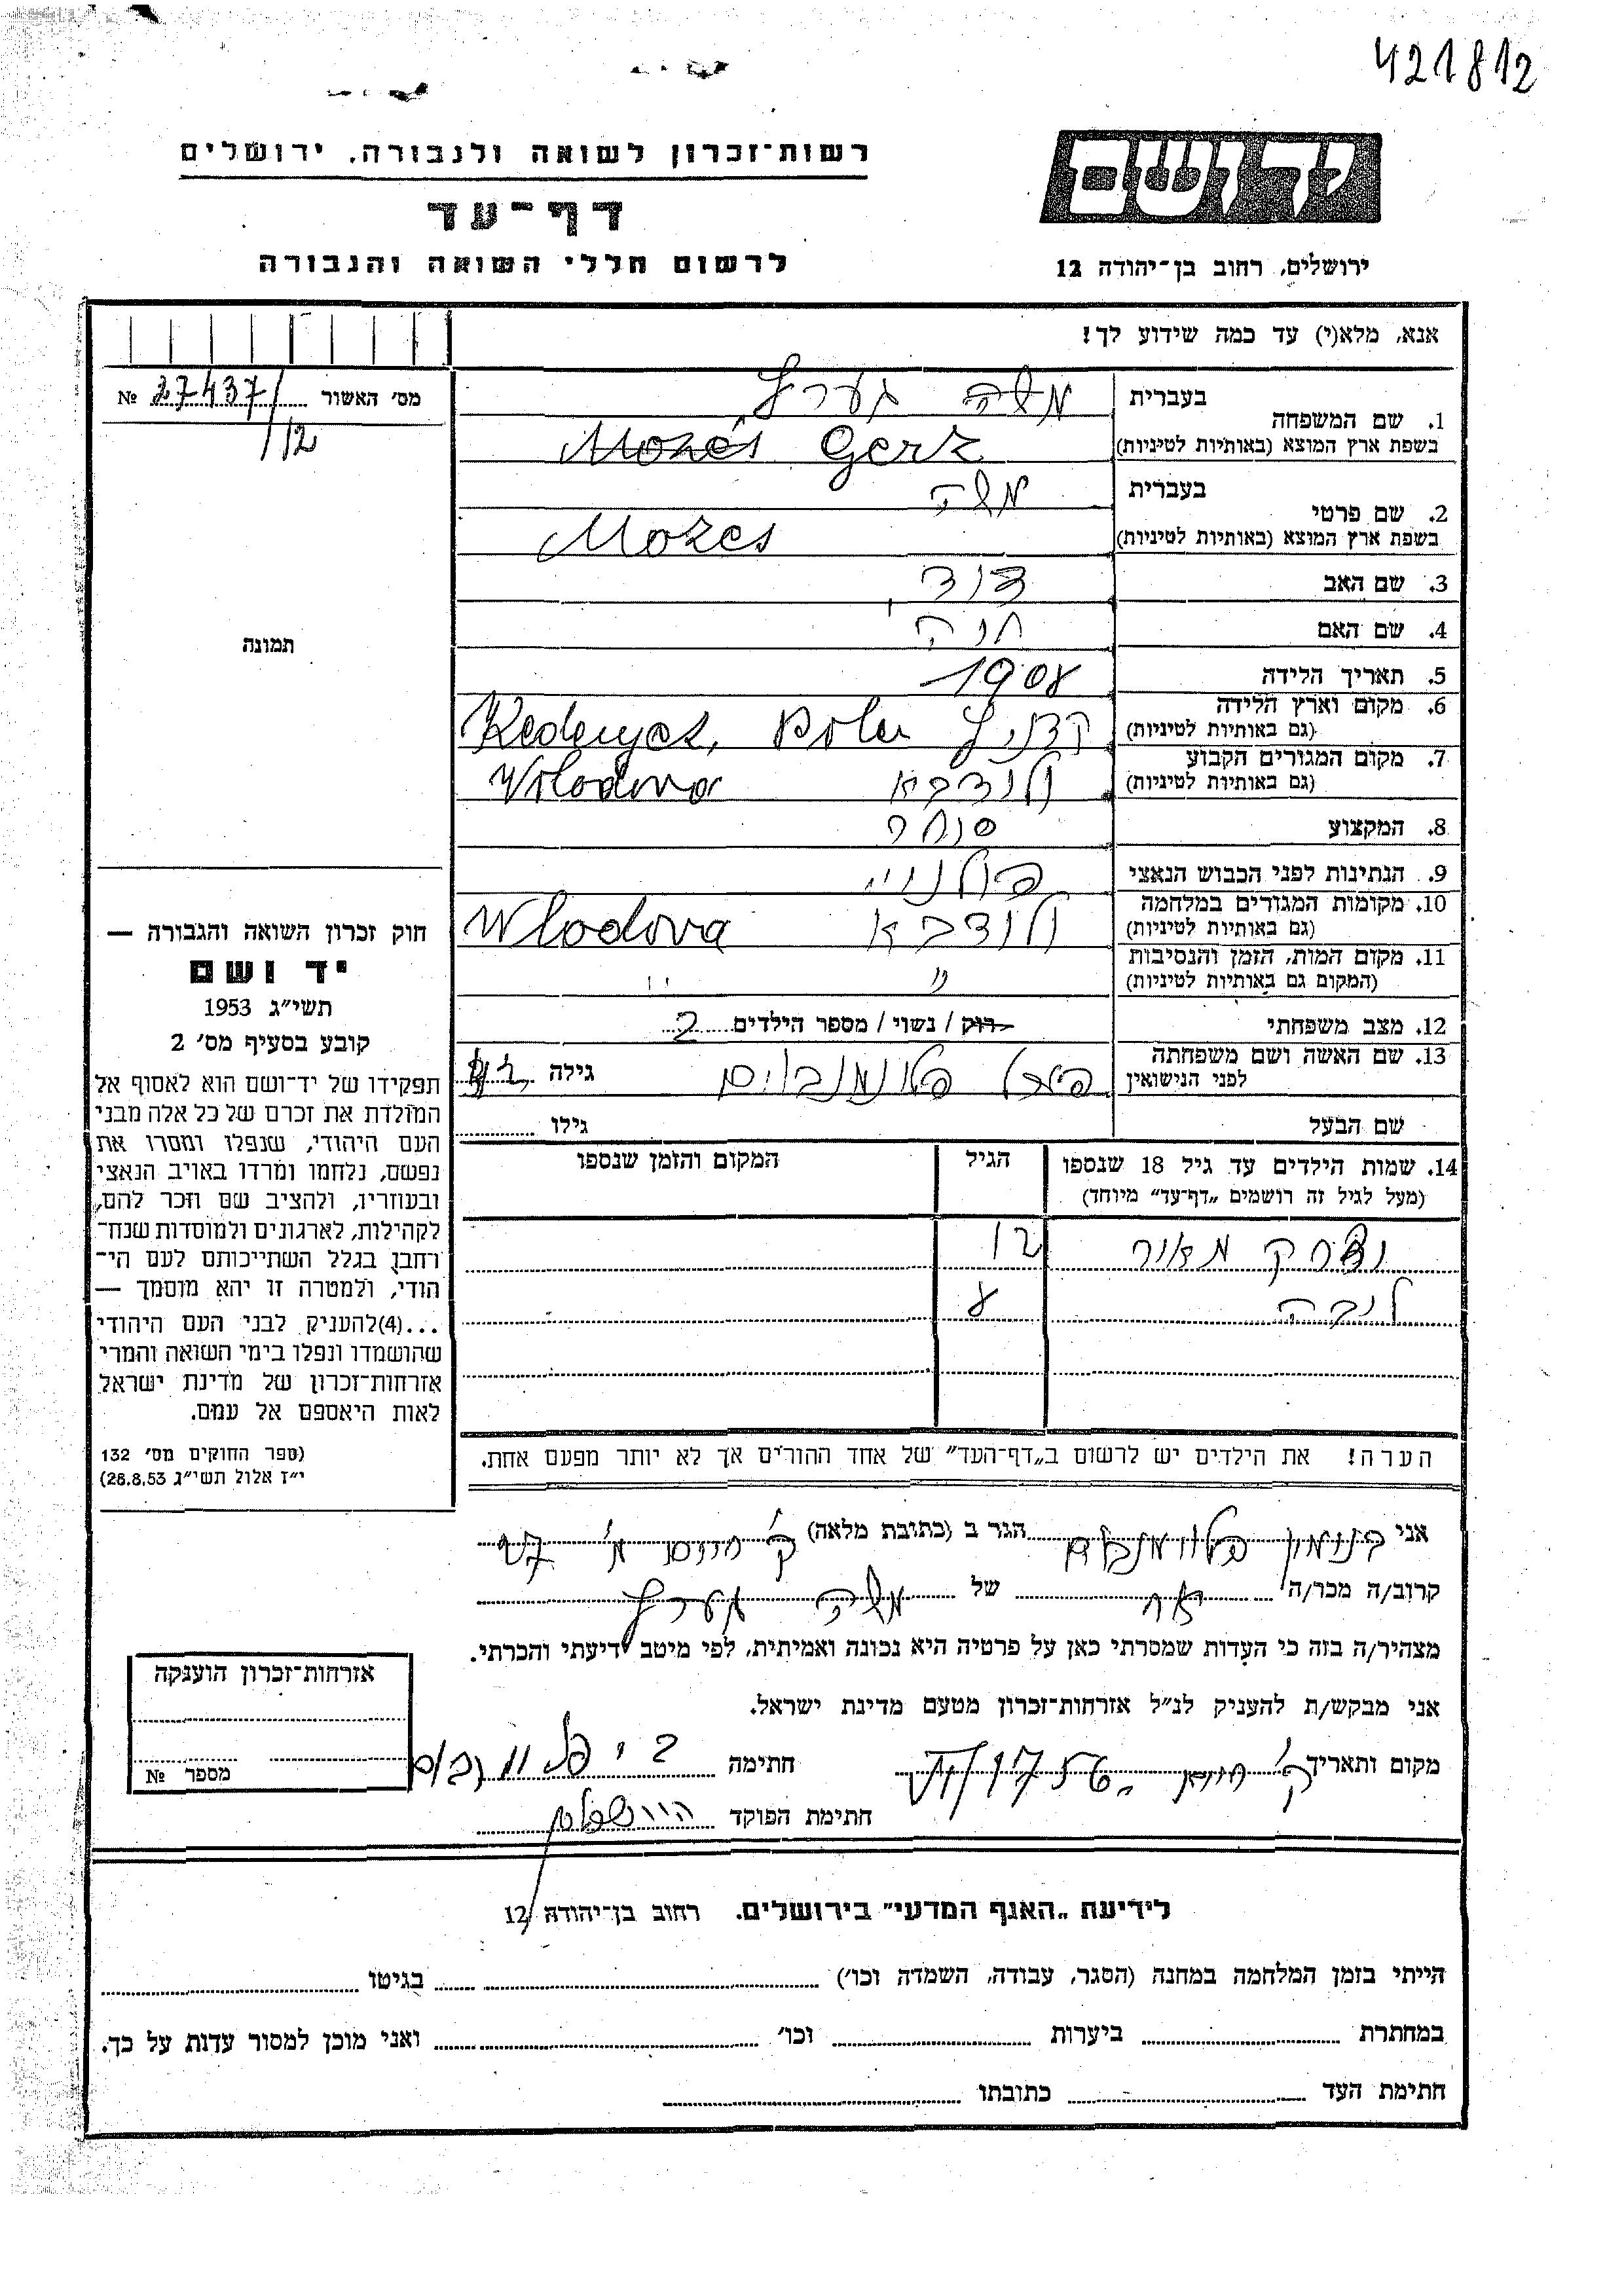 421812
יד ושם
ירושלים, רחוב בן־יהודה 12
רשות־זכרון לשואה ולגבורה, ירושלים
דף־עד
לרשום חללי השואה והגבורה
אנא, מלא(י) עד כמה שידוע לך!
מס׳ האשור № 27437/
/12
1. שם המשפחה
בעברית משה גערץ
בשפת ארץ המוצא (באותיות לטיניות) Mozes Gerz
2. שם פרטי
בעברית משה
בשפת ארץ המוצא (באותיות לטיניות) Mozes
3. שם האב דוד
4. שם האם חנה
5. תאריך הלידה 1908
6. מקום וארץ הלידה
(גם באותיות לטיניות)
7. מקום המגורים הקבוע ולודבא
(גם באותיות לטיניות) Wlodova
8. המקצוע סוחר
9. הנתינות לפני הכבוש הנאצי
10. מקומות המגורים במלחמה ולודבא
(גם באותיות לטיניות) Wlodova
11. מקום המות, הזמן והנסיבות
(המקום גם באותיות לטיניות) " "
12. מצב משפחתי רוק / נשוי / מספר הילדים 2
13. שם האשה ושם משפחתה
לפני הנישואין גילה
שם הבעל גילו
14. שמות הילדים עד גיל 18 שנספו הגיל המקום והזמן שנספו
(מעל לגיל זה רושמים „דף־עד” מיוחד)
12
ליבה 8
הערה! את הילדים יש לרשום ב„דף־העד” של אחד ההורים אך לא יותר מפעם אחת.
תמונה
חוק זכרון השואה והגבורה —
יד ושם
תשי״ג 1953
קובע בסעיף מס׳ 2
תפקידו של יד־ושם הוא לאסוף אל
המולדת את זכרם של כל אלה מבני
העם היהודי, שנפלו ומסרו את
נפשם, נלחמו ומרדו באויב הנאצי
ובעוזריו, ולהציב שם וזכר להם,
לקהילות, לארגונים ולמוסדות שנח־
רחבו בגלל השתייכותם לעם הי־
הודי, ולמטרה זו יהא מוסמך —
...(4)להעניק לבני העם היהודי
שהושמדו ונפלו בימי השואה והמרי
אזרחות־זכרון של מדינת ישראל
לאות היאספם אל עמם.
(ספר החוקים מס׳ 132
י״ז אלול תשי״ג 28.8.53)
אני בנימין הגר ב (כתובת מלאה)
קרוב/ה מכר/ה של משה גערץ
מצהיר/ה בזה כי העדות שמסרתי כאן על פרטיה היא נכונה ואמיתית, לפי מיטב ידיעתי והכרתי.
אני מבקש/ת להעניק לנ״ל אזרחות־זכרון מטעם מדינת ישראל.
מקום ותאריך חתימה
חתימת הפוקד
אזרחות־זכרון הוענקה
מספר №
לידיעת „האגף המדעי” בירושלים. רחוב בן־יהודה 12
הייתי בזמן המלחמה במחנה (הסגר, עבודה, השמדה וכו׳) בגיטו
במחתרת ביערות וכו׳ ואני מוכן למסור עדות על כך.
חתימת העד כתובתו